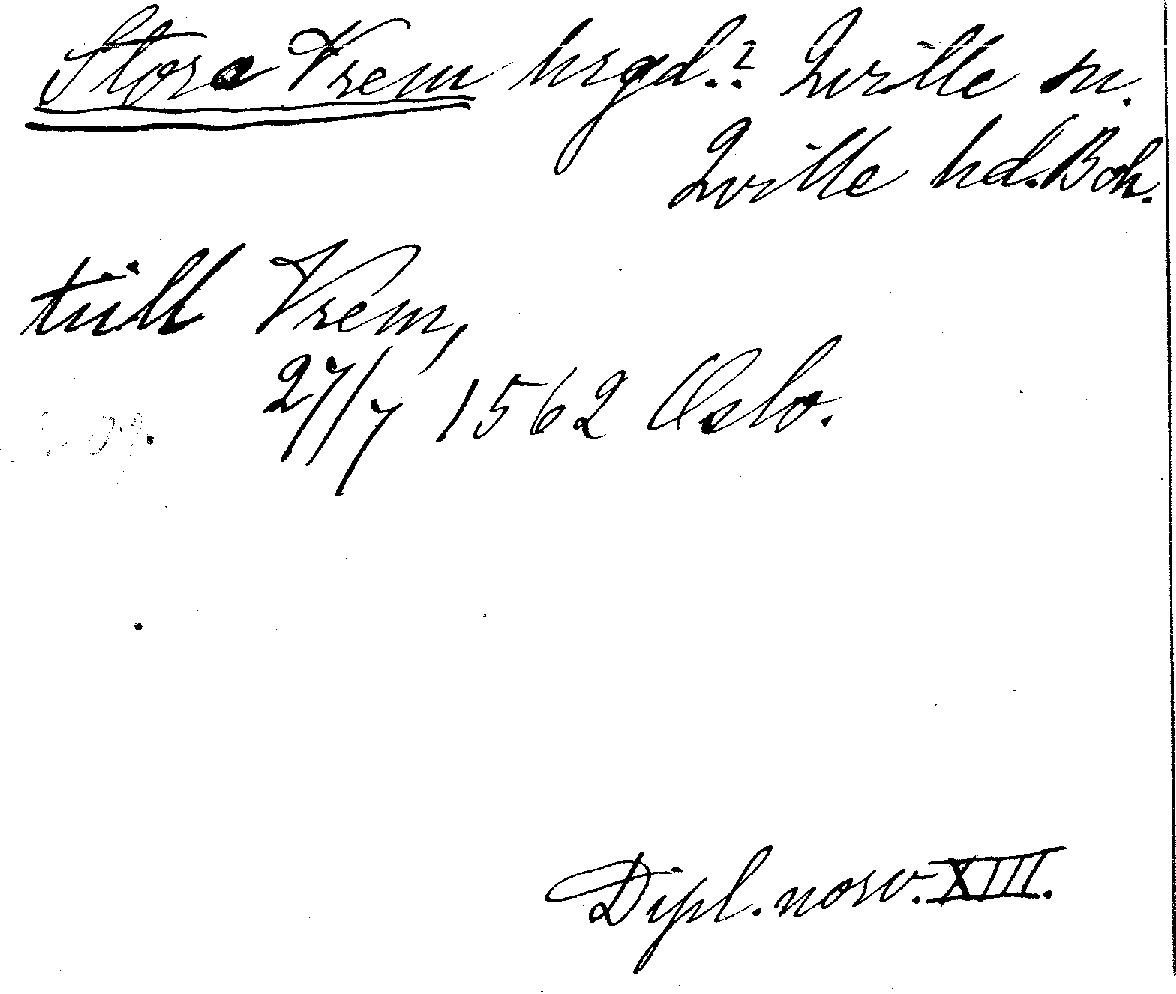 Stora Vrem hrgd.? Qville sn.
Qville hd. Boh.
tiill Vrem,
27/7 1562 Oslo.
Dipl. norv. XIII.